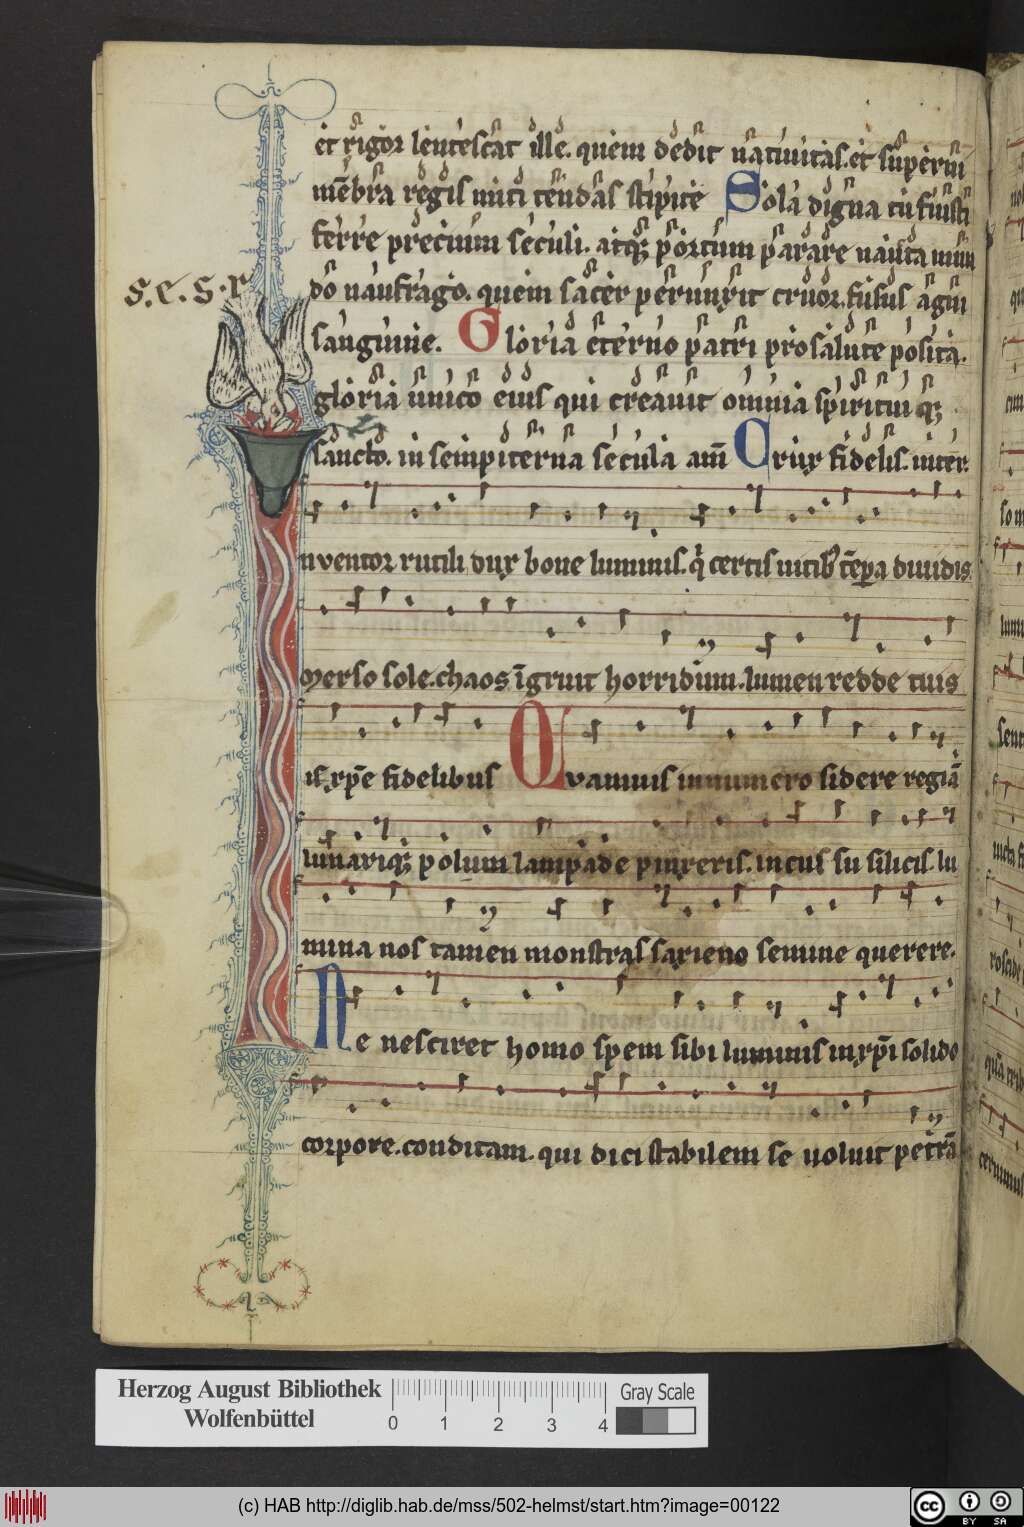 et rigor lentescat ille. quem dedit natiuitas. et superni
mēbra regis miti tendas stipite Sola digna tu fuisti
ferre precium seculi. atq; portum parare nauta mun
S. E. S. R
do naufrago. quem sacer perunxit cruor. fusus agni
sanguine. Gloria eterno patri pro salute posita.
gloria unico eius qui creauit omnia spirituiq;
sancto. in sempiterna secula am̄ Crux fidelis. inter.
Inventor rutili dux bone luminis. q̇ certis uicib; tēpa diuidis
merso sole. chaos īgruit horridum. lumen redde tuis
is xp̄e fidelibus Qvamuis innumero sidere regiā
lunariq; polum lampade pinxeris. incussu silicis. lu
mina nos tamen monstras saxieno semine querere.
Ne nesciret homo spem sibi luminis in xp̄i solido
corpore. conditam. qui dici stabilem se uoluit petrā
Herzog August Bibliothek
Wolfenbüttel
0 1 2 3 4
Gray Scale
(c) HAB http://diglib.hab.de/mss/502-helmst/start.htm?image=00122
cc BY SA